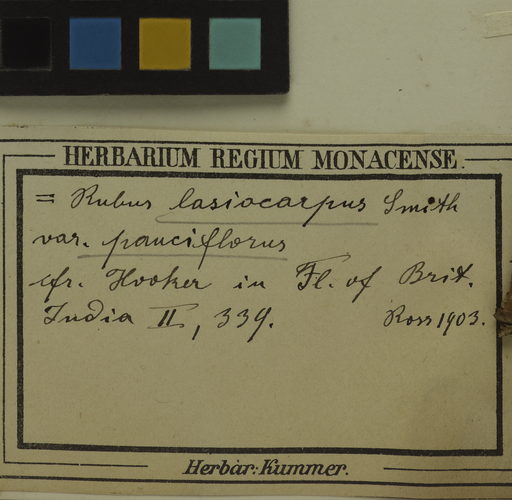 HERBARIUM REGIUM MONACENSE.
= Rubus lasiocarpus Smith
var. pauciflorus
cfr. Hooker in Fl. of Brit.
India II, 339.
Ross 1903.
Herbar: Kummer.